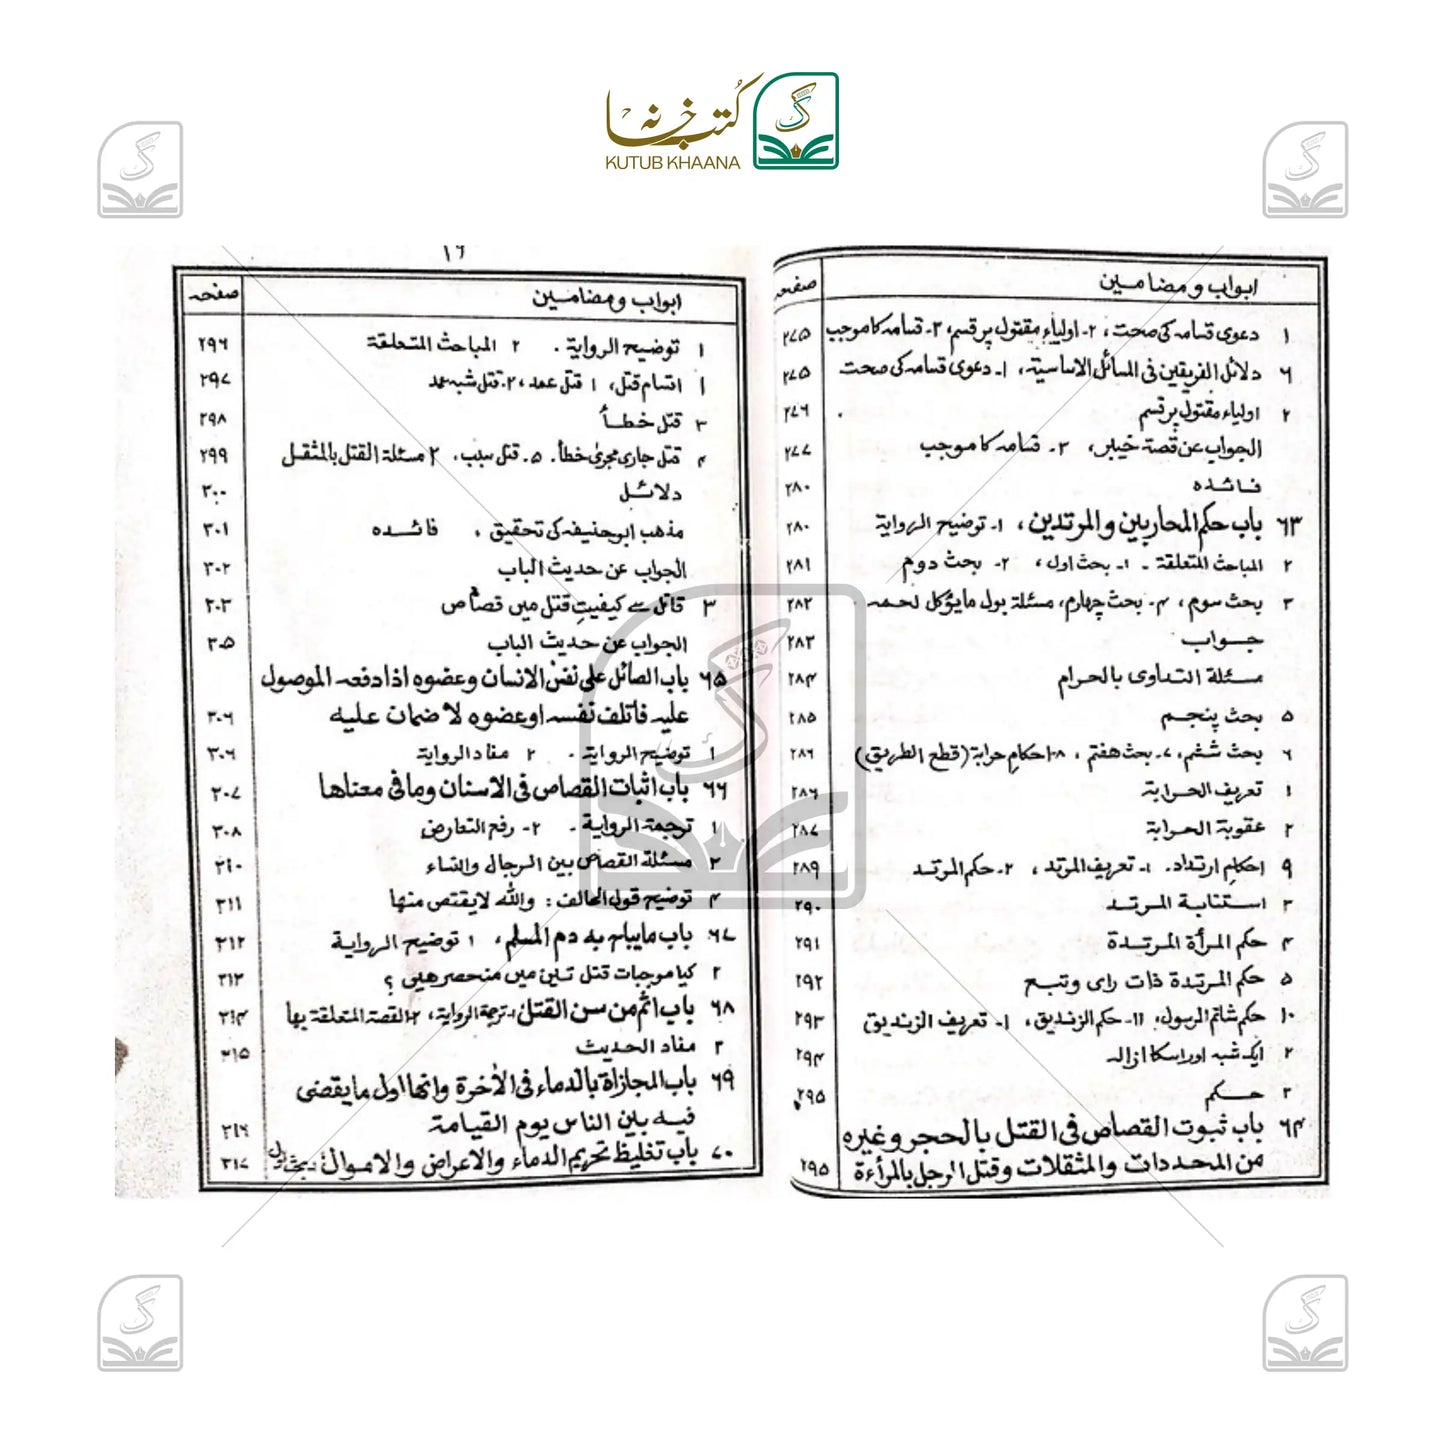 کُتب خانہ
KUTUB KHAANA
ابواب و مضامین صفحہ
۱ دعوی قسامہ کی صحت، ۲۔ اولیاء مقتول پر قسم، ۳۔ قسامہ کا موجب ۲۷۵
۶ دلائل الفریقین فی المسائل الاساسیۃ، ۱۔ دعوی قسامہ کی صحت ۲۷۵
۲ اولیاء مقتول پر قسم ۲۷۶
الجواب عن قصۃ خیبر، ۳۔ قسامہ کا موجب ۲۷۷
فائدہ ۲۸۰
۶۳ باب حکم المحاربین والمرتدین، ۱۔ توضیح الروایۃ ۲۸۰
۲ المباحث المتعلقۃ ۔ ۱۔ بحث اول، ۲۔ بحث دوم ۲۸۱
۳ بحث سوم، ۴۔ بحث چہارم، مسئلۃ بول مایؤکل لحمہ ۲۸۲
جواب ۲۸۳
مسئلۃ التداوی بالحرام ۲۸۴
۵ بحث پنجم ۲۸۵
۶ بحث ششم، ۷۔ بحث ہفتم، ۸۔ احکام حرابۃ (قطع الطریق) ۲۸۶
۱ تعریف الحرابۃ ۲۸۶
۲ عقوبۃ الحرابۃ ۲۸۷
۹ احکام ارتداد۔ ۱۔ تعریف المرتد، ۲۔ حکم المرتد ۲۸۹
۳ استتابۃ المرتد ۲۹۰
۴ حکم المرأۃ المرتدۃ ۲۹۱
۵ حکم المرتدۃ ذات رای وتبع ۲۹۲
۱۰ حکم شاتم الرسول، ۱۱۔ حکم الزندیق، ۱۔ تعریف الزندیق ۲۹۳
۲ ایک شبہ اور اسکا ازالہ ۲۹۴
۳ حکم ۲۹۵
۶۴ باب ثبوت القصاص فی القتل بالحجر وغیرہ
من المحددات والمثقلات وقتل الرجل بالمرأۃ ۲۹۵
۱۶
ابواب و مضامین صفحہ
۱ توضیح الروایۃ ۔ ۲ المباحث المتعلقۃ ۲۹۶
۱ اقسام قتل، ۱ قتل عمد، ۲۔ قتل شبہ عمد ۲۹۷
۳ قتل خطأ ۲۹۸
۴ قتل جاری مجریٰ خطأ ۔ ۵۔ قتل سبب، ۲ مسئلۃ القتل بالمثقل ۲۹۹
دلائل ۳۰۰
مذھب ابو حنیفہ کی تحقیق، فائدہ ۳۰۱
الجواب عن حدیث الباب ۳۰۲
۳ قاتل سے کیفیتِ قتل میں قصاص ۳۰۳
الجواب عن حدیث الباب ۳۰۵
۶۵ باب الصائل علی نفس الانسان وعضوہ اذا دفعہ الموصول
علیہ فاتلف نفسہ او عضوہ لا ضمان علیہ ۳۰۶
۱ توضیح الروایۃ ۔ ۲ مفاد الروایۃ ۳۰۶
۶۶ باب اثبات القصاص فی الاسنان وما فی معناھا ۳۰۷
۱ ترجمۃ الروایۃ ۔ ۲۔ رفع التعارض ۳۰۸
۳ مسئلۃ القصاص بین الرجال والنساء ۳۱۰
۴ توضیح قول الحالف: واللہ لا یقتص منھا ۳۱۱
۶۷ باب مایباح بہ دم المسلم، ۱ توضیح الروایۃ ۳۱۲
۲ کیا موجبات قتل تین میں منحصر ہیں؟ ۳۱۳
۶۸ باب اثم من سن القتل، ۱۔ ترجمۃ الروایۃ، ۲۔ القصۃ المتعلقۃ بھا ۳۱۴
۳ مفاد الحدیث ۳۱۵
۶۹ باب المجازاۃ بالدماء فی الآخرۃ وانھا اول ما یقضی
فیہ بین الناس یوم القیامۃ ۳۱۶
۷۰ باب تغلیظ تحریم الدماء والاعراض والاموال: بحث اول ۳۱۷